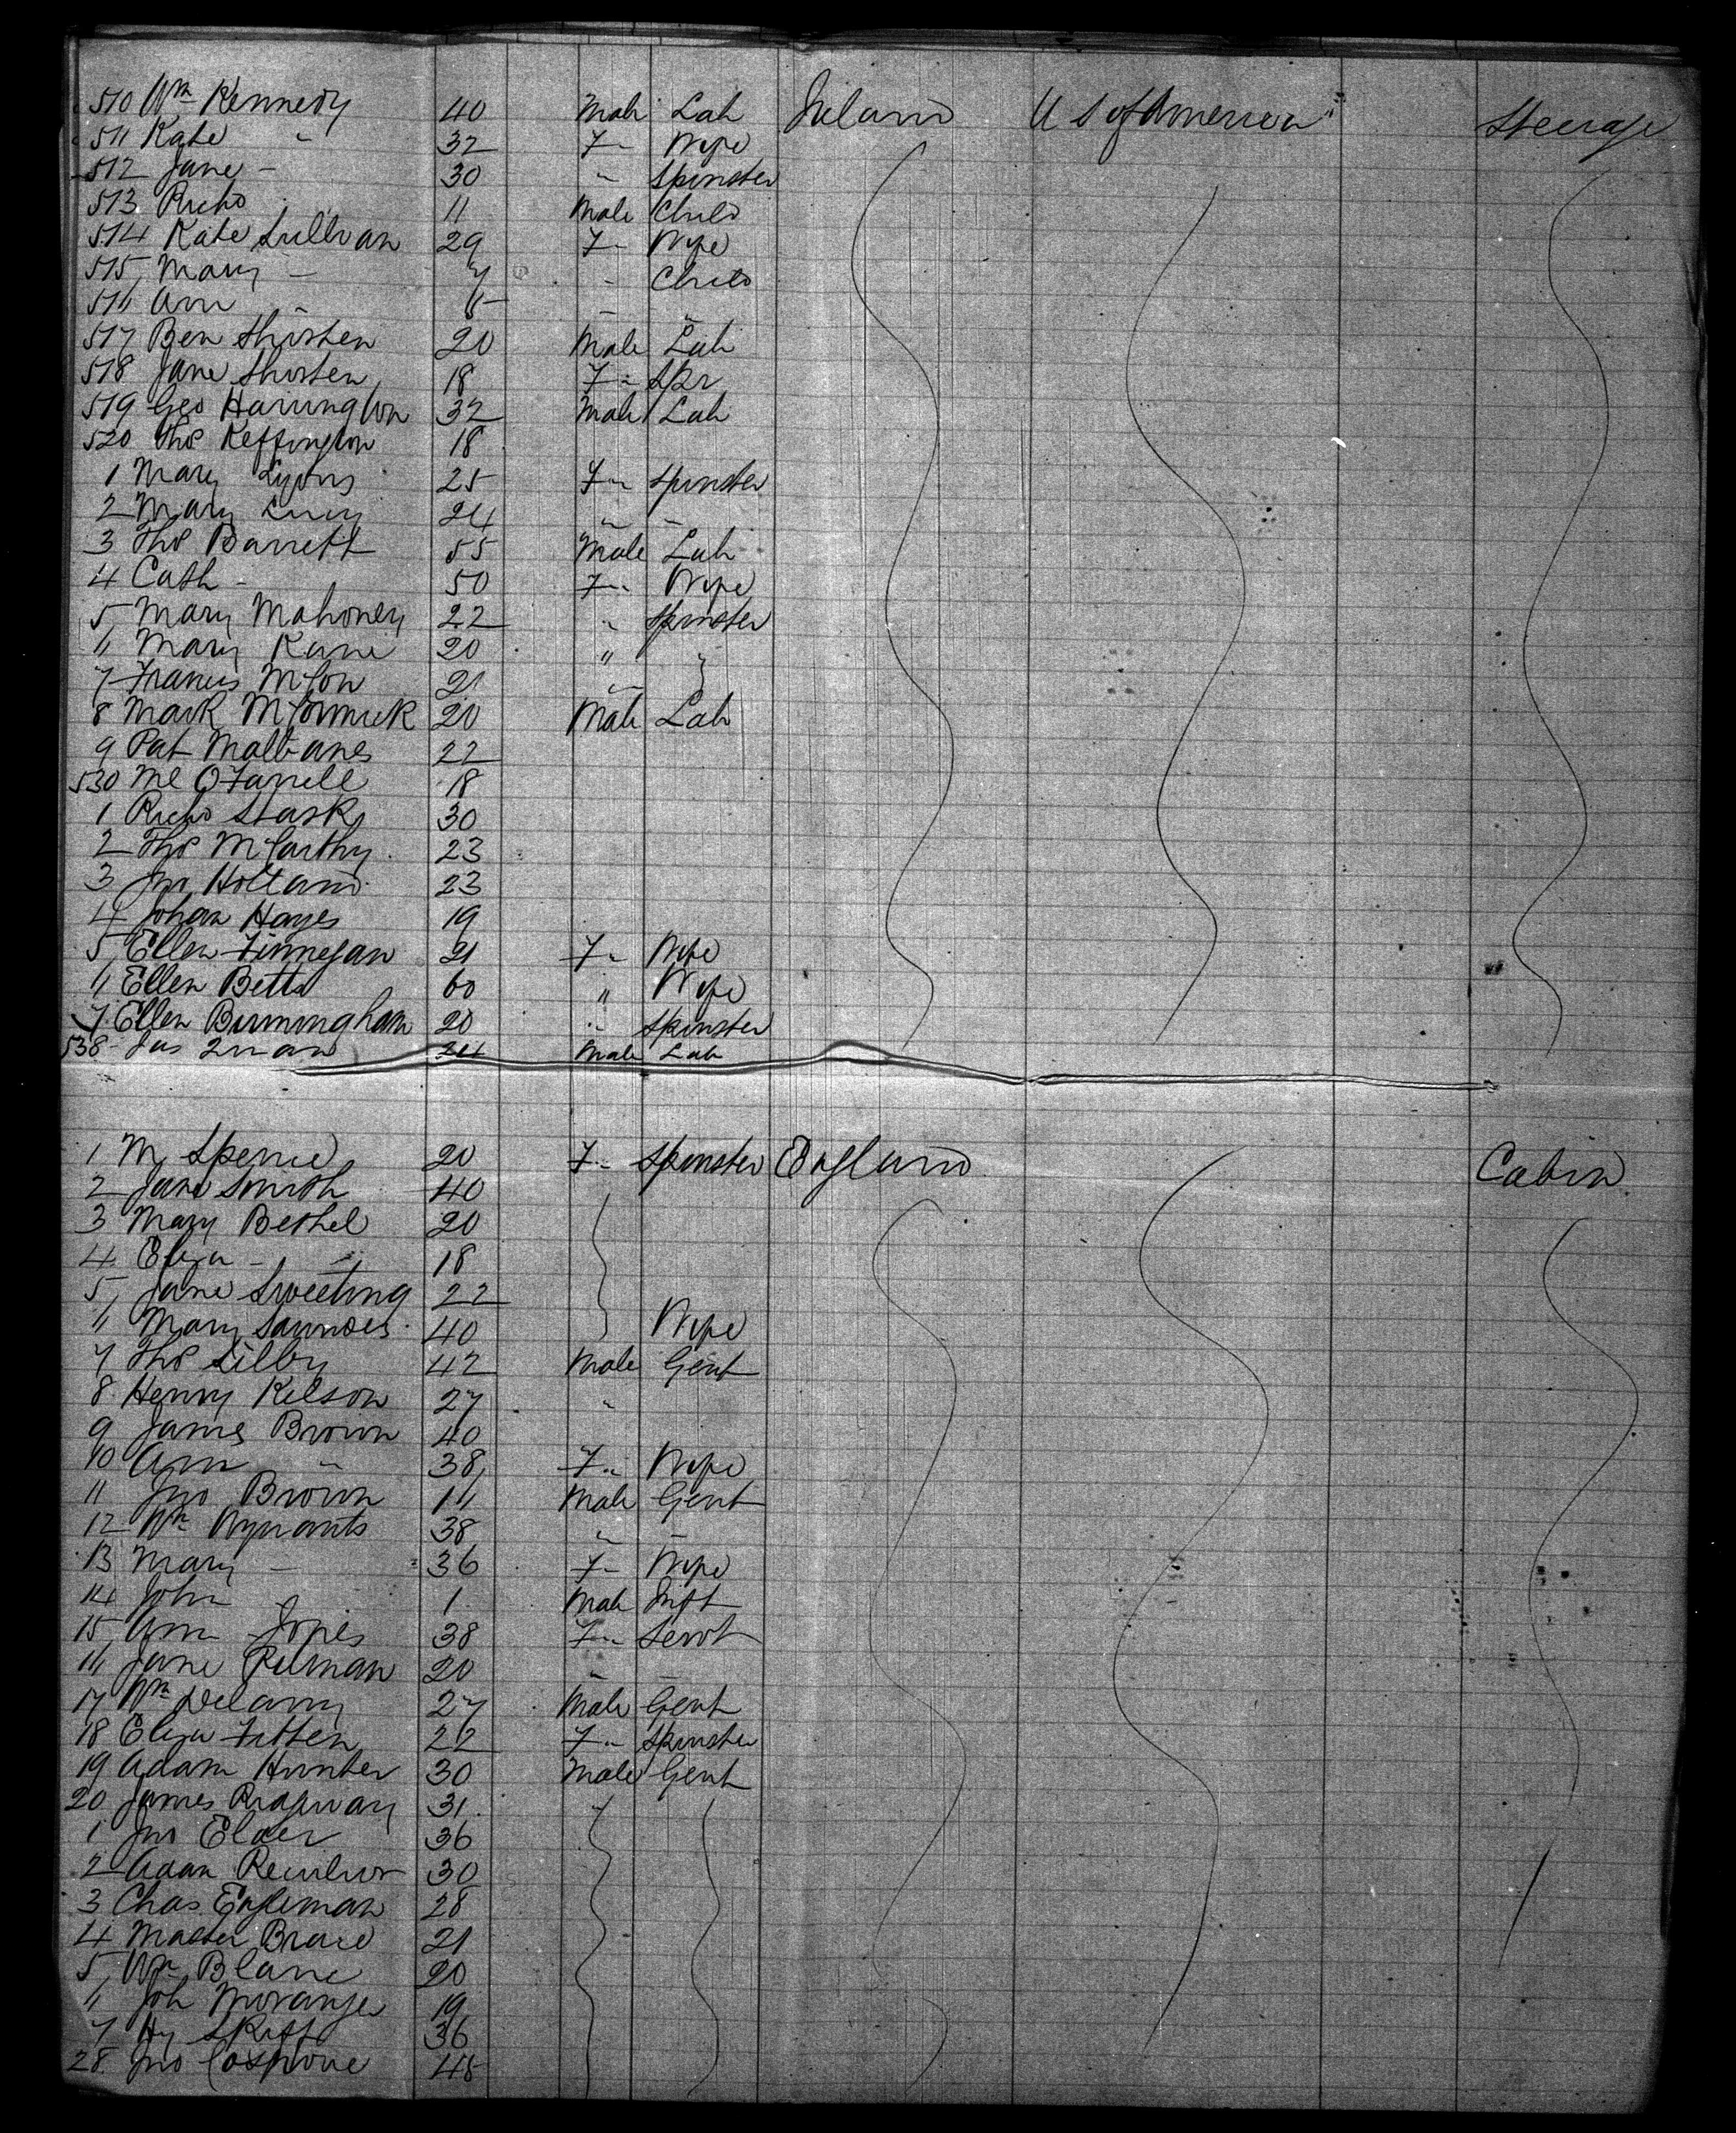 510 Wm Kennedy 40 Male Lab Ireland U S of America Steerage
511 Kate " 32 F " Wife
512 Jane - 30 " Spinster
513 Richd 11 Male Child
514 Kate Sullivan 29 F " Wife
515 Mary - 7 " Child
516 Ann - 6
517 Ben Shorten 20 Male Lab
518 Jane Shorten 18 F " Spr
519 Geo Harrington 32 Male Lab
520 Thos Keffington 18
1 Mary Lyons 25 F " Spinster
2 Mary 24 " "
3 Thos Barrett 55 Male Lab
4 Cath - 50 F " Wife
5 Mary Mahoney 22 " Spinster
6 Mary Kane 20 "
7 Francis 21 "
8 Mark McCormick 20 Male Lab
9 Pat 22
530 Ml O'Farrell 18
1 Richd Stark 30
2 Thos McCarthy 23
3 Jno Holland 23
4 Johan Hayes 19
5 Ellen Finnegan 21 F " Wife
6 Ellen Betts 60 " Wife
7 Ellen Birmingham 20 " Spinster
538 Jas 24 Male Lab
1 M Spence 20 F " Spinster England Cabin
2 Jane Smith 40
3 Mary Bethel 20
4 Eliza - " 18
5 Jane Sweeting 22
6 Mary Saunders 40 Wife
7 Thos Lilby 42 Male Gent
8 Henry Kelson 27 "
9 James Brown 40
10 Ann " 38 F " Wife
11 Jno Brown 16 Male Gent
12 Wm Wynants 38 " "
13 Mary - 36 F " Wife
14 John 1 Male Inft
15 Ann Jones 38 F " Servt
16 Jane 20 " "
17 Wm Delany 27 Male Gent
18 Eliza Fitten 22 F " Spinster
19 Adam Hunter 30 Male Gent
20 James Ridgway 31
1 Jno Elder 36
2 Adam 30
3 Chas Engleman 28
4 21
5 Wm Blane 20
6 Joh Moranger 19
7 Hy Skiff 36
28 Jno 45